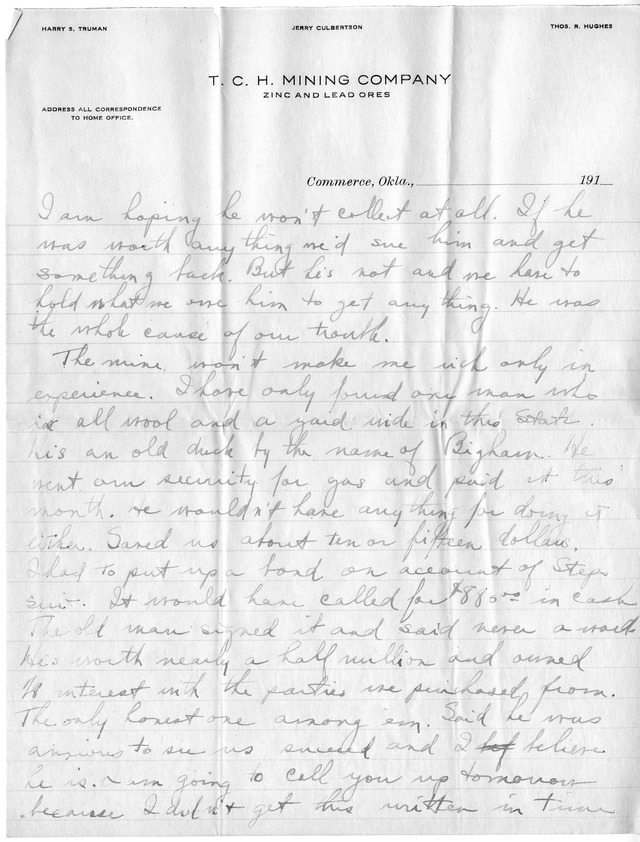 HARRY S. TRUMAN JERRY CULBERTSON THOS. R. HUGHES
T. C. H. MINING COMPANY
ZINC AND LEAD ORES
ADDRESS ALL CORRESPONDENCE
TO HOME OFFICE.
Commerce, Okla., 191
I am hoping he won't collect at all. If he
was worth anything we'd sue him and get
something back. But he's not and we have to
hold what we owe him to get anything. He was
the whole cause of our trouble.
The mine won't make me rich only in
experience. I have only found one man who
is all wool and a yard wide in this State.
his an old duck by the name of Bigham. He
went our security for gas and paid it this
month. He wouldn't have anything for doing it
either. Saved us about ten or fifteen dollars.
I had to put up a bond on account of
suit. It would have called for $880 00 in cash
The old man signed it and said never a word.
He's worth nearly a half million and owned
1/8 interest with the parties we purchased from.
The only honest one among em. Said he was
anxious to see us succeed and I believe
he is. I am going to call you up tomorrow
because I didn't get this written in time